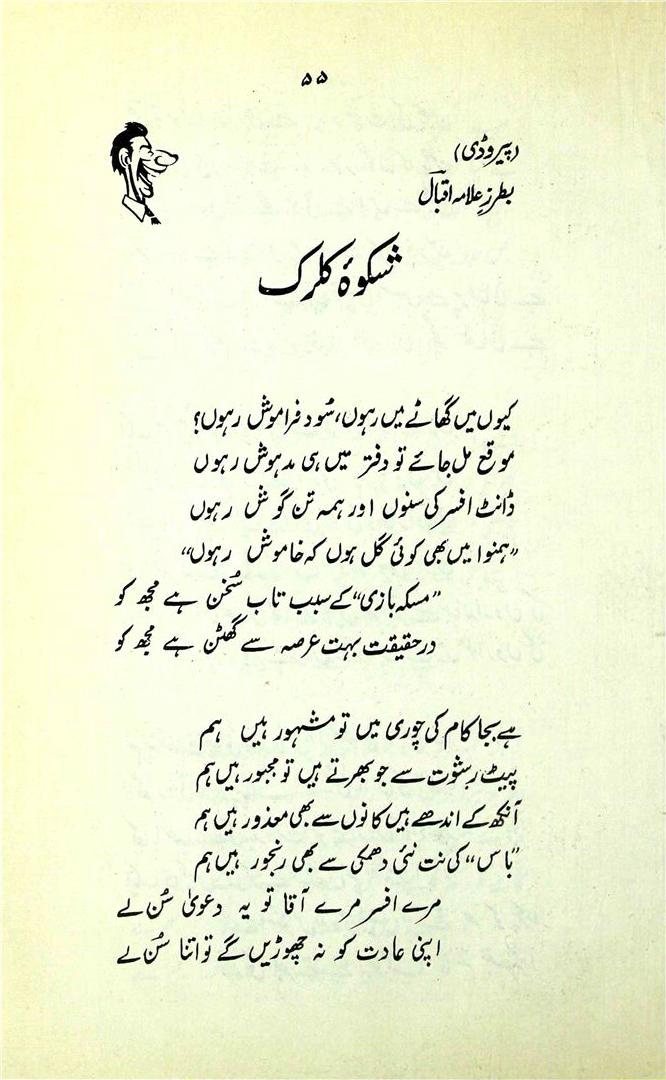 ۵۵
(پیروڈی)
بطرزِ علامہ اقبالؔ
شکوۂ کلرک
کیوں میں گھاٹے میں رہوں، سُود فراموش رہوں؟
موقع مل جائے تو دفتر میں ہی مدہوش رہوں
ڈانٹ افسر کی سنوں اور ہمہ تن گوش رہوں
"ہمنوا میں بھی کوئی گل ہوں کہ خاموش رہوں"
"مسکہ بازی" کے سبب تابِ سُخن ہے مجھ کو
درحقیقت بہت عرصہ سے گھٹن ہے مجھ کو
ہے بجا کام کی چوری میں تو مشہور ہیں ہم
پیٹ رشوت سے جو بھرتے ہیں تو مجبور ہیں ہم
آنکھ کے اندھے ہیں کانوں سے بھی معذور ہیں ہم
"باس" کی نت نئی دھمکی سے بھی رنجور ہیں ہم
مرے افسر مرے آقا تو یہ دعویٰ سُن لے
اپنی عادت کو نہ چھوڑیں گے تو اتنا سُن لے